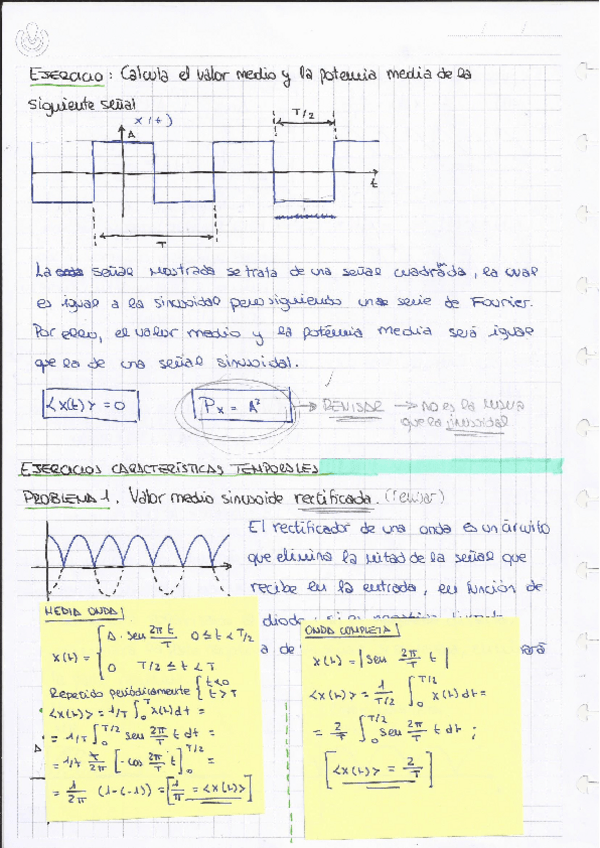 EJERCICIO: Calcula el valor medio y la potencia media de la
siguiente señal
x(t)
A
T/2
t
T
La señal mostrada se trata de una señal cuadrada, la cual
es igual a la sinusoidal pero siguiendo una serie de Fourier.
Por ello, el valor medio y la potencia media será igual
que la de una señal sinusoidal.
<x(t)> = 0
Px = A² → REVISAR → NO es la misma
que la sinusoidal
EJERCICIOS CARACTERÍSTICAS TEMPORALES
PROBLEMA 1. Valor medio sinusoide rectificada. (revisar)
El rectificador de una onda es un circuito
que elimina la mitad de la señal que
recibe en la entrada, en función de
diodo
MEDIA ONDA
x(t) = { A · sen 2π t/T 0 ≤ t < T/2
0 T/2 ≤ t < T
Repetido periódicamente { t<0
t>T
<x(t)> = 1/T ∫₀ᵀ x(t) dt =
= 1/T ∫₀^T/2 sen 2π/T t dt =
= 1/T T/2π [-cos 2π/T t]₀^T/2 =
= 1/2π (1-(-1)) = [1/π = <x(t)>]
ONDA COMPLETA
x(t) = |sen 2π/T t|
<x(t)> = 1/T/2 ∫₀^T/2 x(t) dt =
= 2/T ∫₀^T/2 sen 2π/T t dt;
[<x(t)> = 2/T]